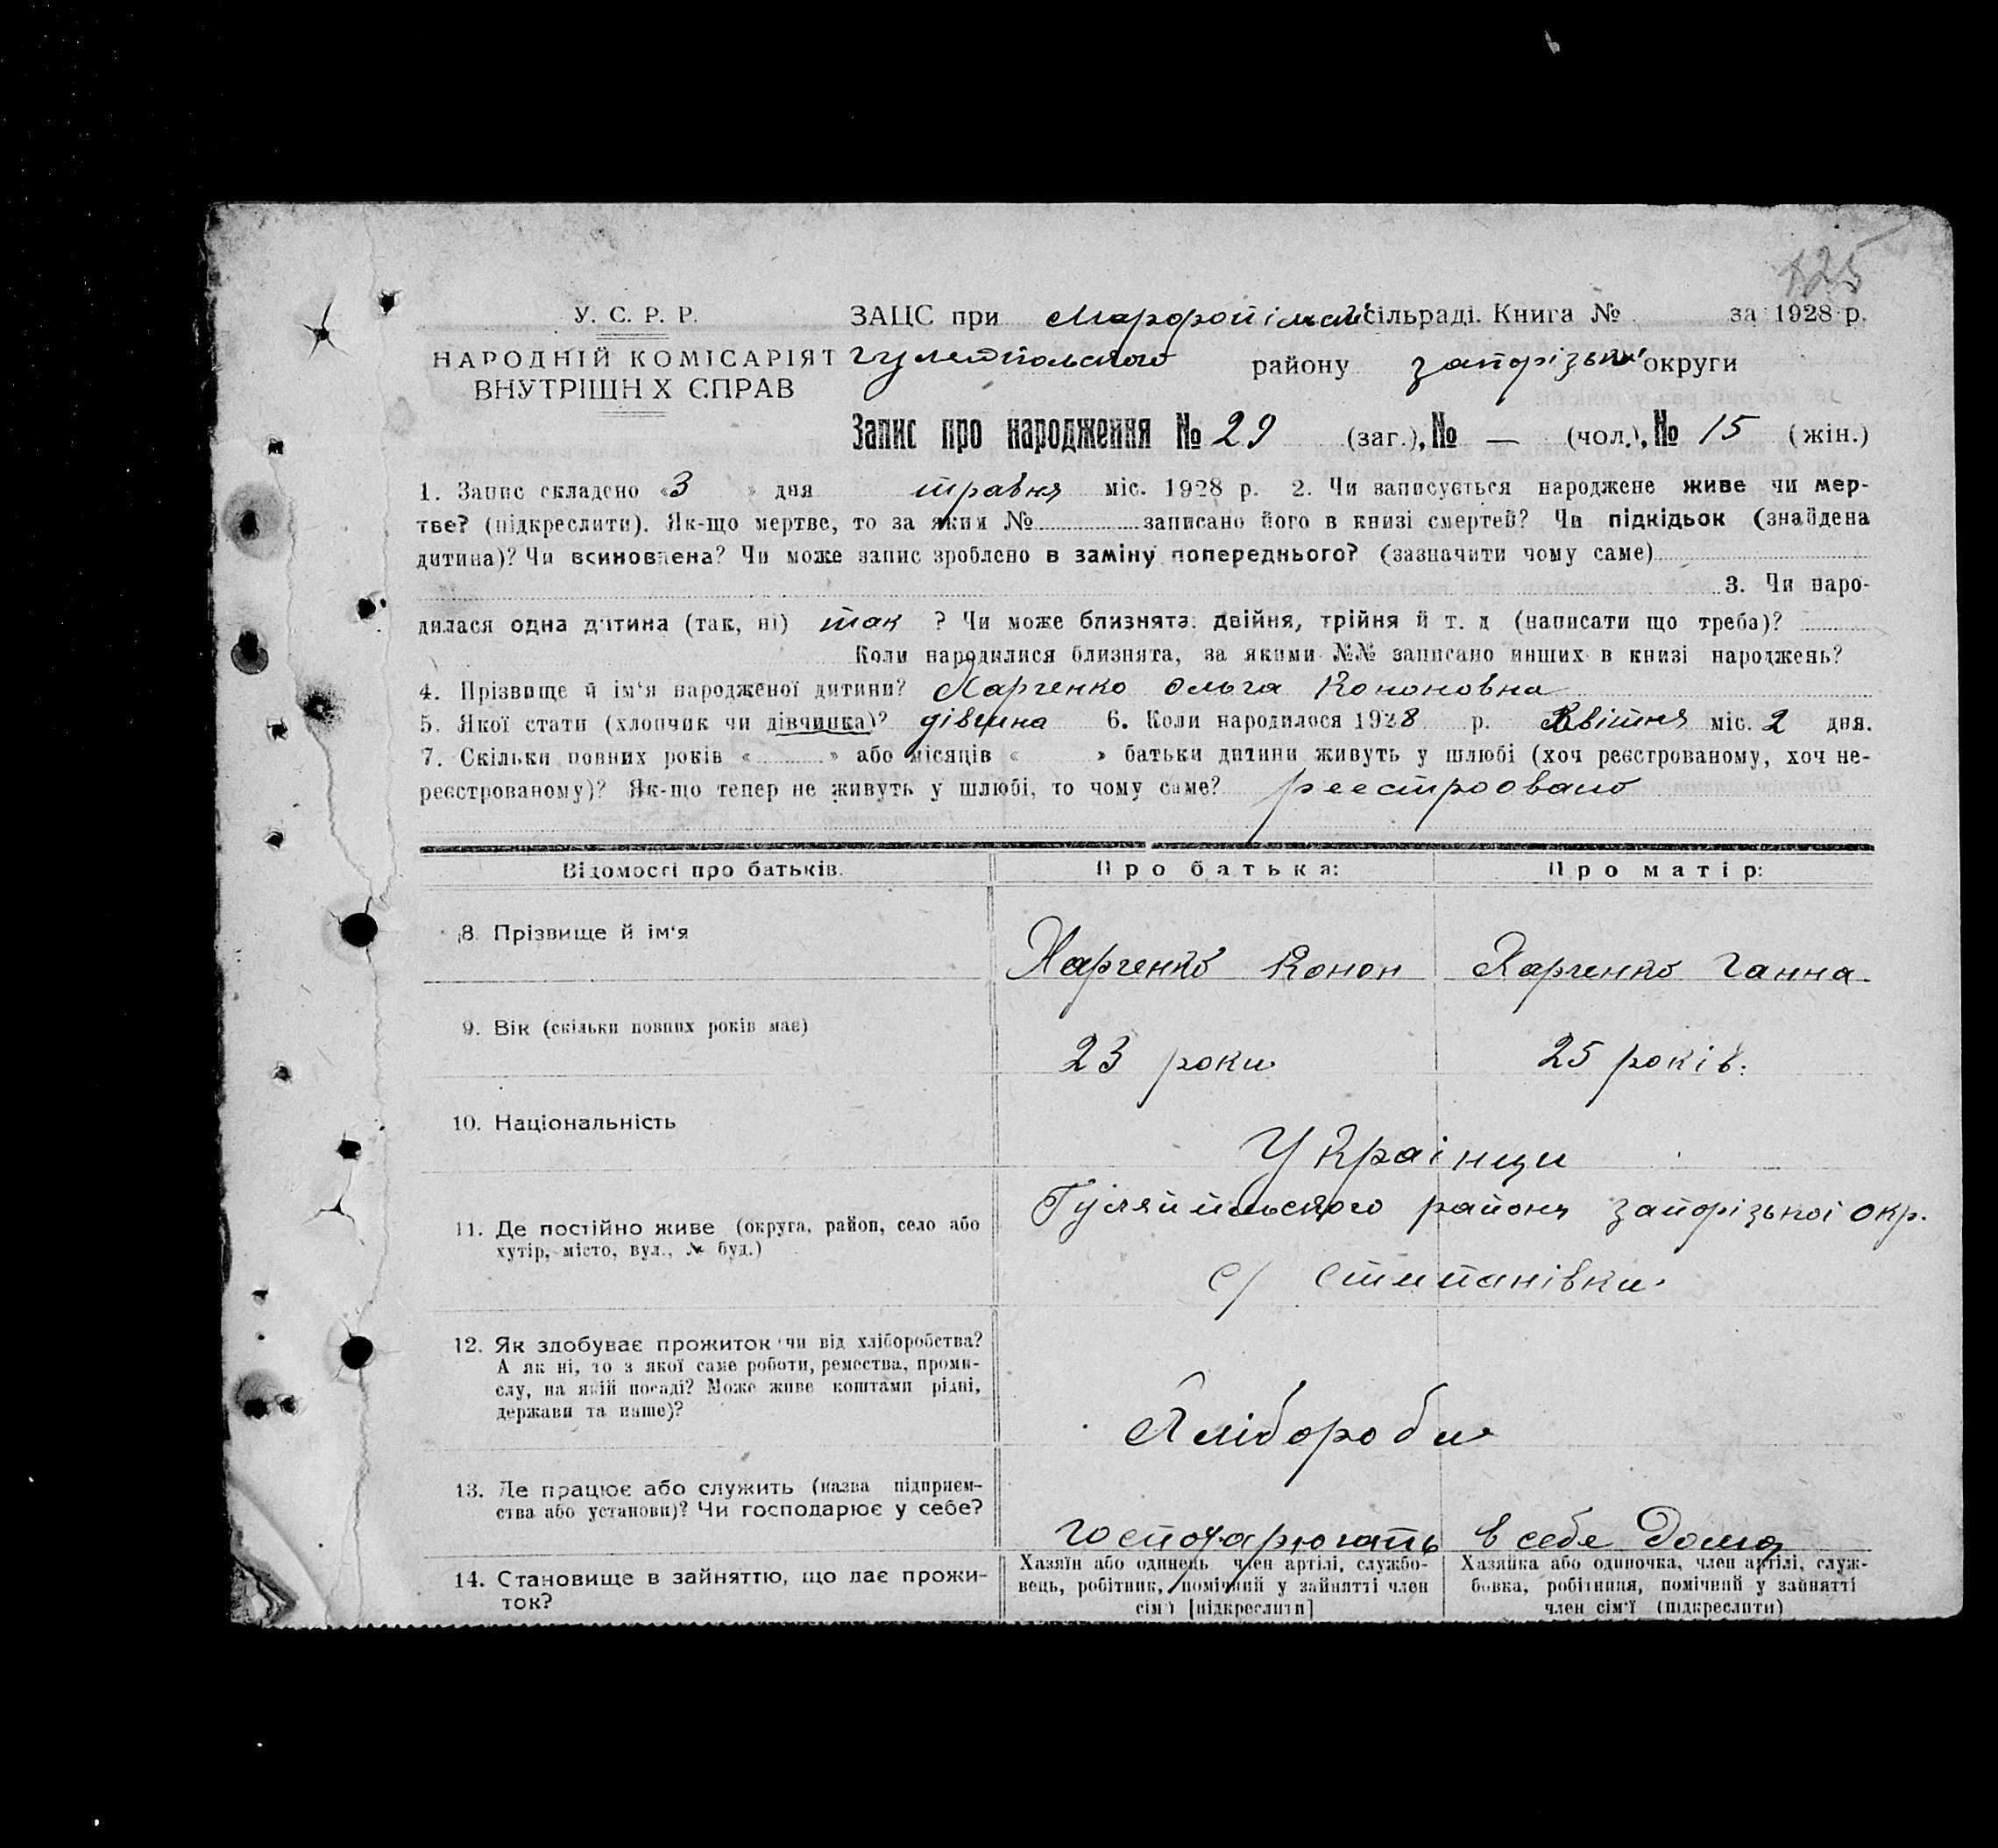 125
У. С. Р. Р.
НАРОДНІЙ КОМІСАРІЯТ
ВНУТРІШН Х СПРАВ
ЗАЦС при сільраді. Книга № за 1928 р.
району запорізької округи
Запис про народження № 29 (заг.), № — (чол.), № 15 (жін.)
1. Запис складено «3 » дня травня міс. 1928 р. 2. Чи записується народжене живе чи мер-
тве? (підкреслити). Як-що мертве, то за яким № записано його в книзі смертей? Чи підкідьок (знайдена
дитина)? Чи всиновлена? Чи може запис зроблено в заміну попереднього? (зазначити чому саме)
3. Чи наро-
дилася одна дитина (так, ні) так ? Чи може близнята: двійня, трійня й т. д (написати що треба)?
Коли народилися близнята, за якими №№ записано инших в книзі народжень?
4. Прізвище й ім'я народженої дитини? Харченко Ольга Кононовна
5. Якої стати (хлопчик чи дівчинка)? дівчина 6. Коли народилося 1928 р. Квітня міс. 2 дня.
7. Скільки повних років « » або місяців « » батьки дитини живуть у шлюбі (хоч реєстрованому, хоч не-
реєстрованому)? Як-що тепер не живуть у шлюбі, то чому саме? реестровано
Відомості про батьків. Про батька: Про матір:
8. Прізвище й ім'я Харченко Конон Харченко Ганна
9. Вік (скільки повних років має) 23 роки 25 років.
10. Національність Украінци
11. Де постійно живе (округа, район, село або
хутір, місто, вул., № буд.)
району запорізькоі окр.
с/ Стипанівки.
12. Як здобуває прожиток чи від хліборобства?
А як ні, то з якої саме роботи, ремества, проми-
слу, на якій посаді? Може живе коштами рідні,
держави та инше)?
Хлібороби
13. Де працює або служить (назва підприєм-
ства або установи)? Чи господарює у себе?
господарюють в себе дома
14. Становище в зайняттю, що дає прожи-
ток?
Хазяїн або одинець член артілі, службо-
вець, робітник, помічний у зайнятті член
сім'ї [підкреслити]
Хазяйка або одиночка, член артілі, служ-
бовка, робітниця, помічний у зайнятті
член сім'ї (підкреслити)